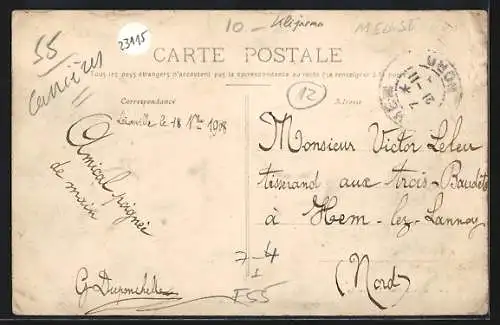 55
Carrières
23115
10 -
MEUSE
CARTE POSTALE
Tous les pays étrangers n'acceptent pas la correspondance au recto (se renseigner à la poste)
12
NORD
7 - 11
Correspondance
Adresse
le 18 9bre 1908
Amical poignée
de main
G Duponchelle
Monsieur Victor Leleu
tisserand aux trois-Baudets
à Hem-lez-Lannoy
(Nord)
7-4
1
F55